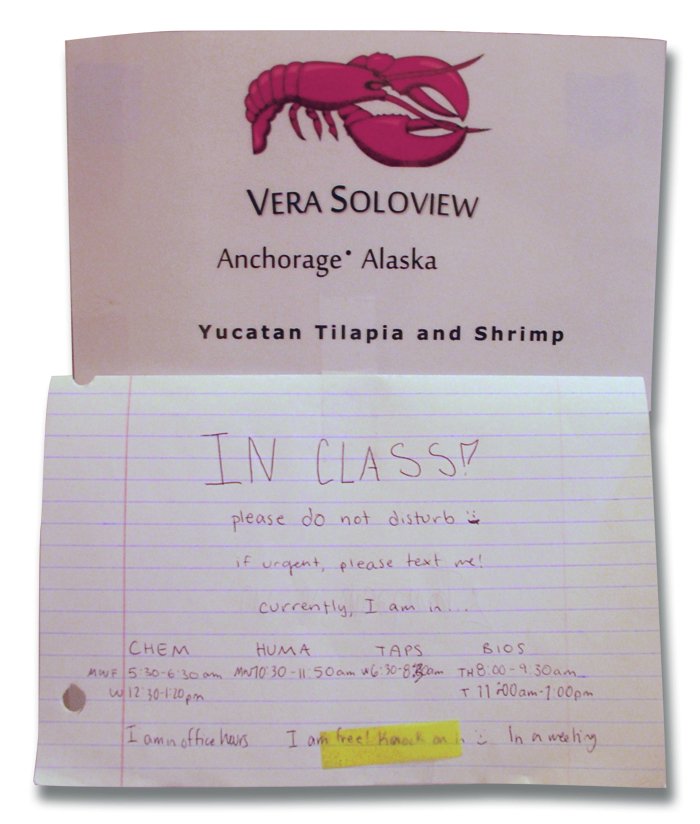 VERA SOLOVIEW
Anchorage • Alaska
Yucatan Tilapia and Shrimp
IN CLASS!
please do not disturb
if urgent, please text me!
currently, I am in...
CHEM HUMA TAPS BIOS
MWF 5:30-6:30am MW 10:30-11:50am W 6:30-8: am TH 8:00-9:30am
W 12:30-1:20pm T 11:00am-1:00pm
I am in office hours I am free! Knock on In a meeting